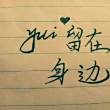 yui♥留在
身边